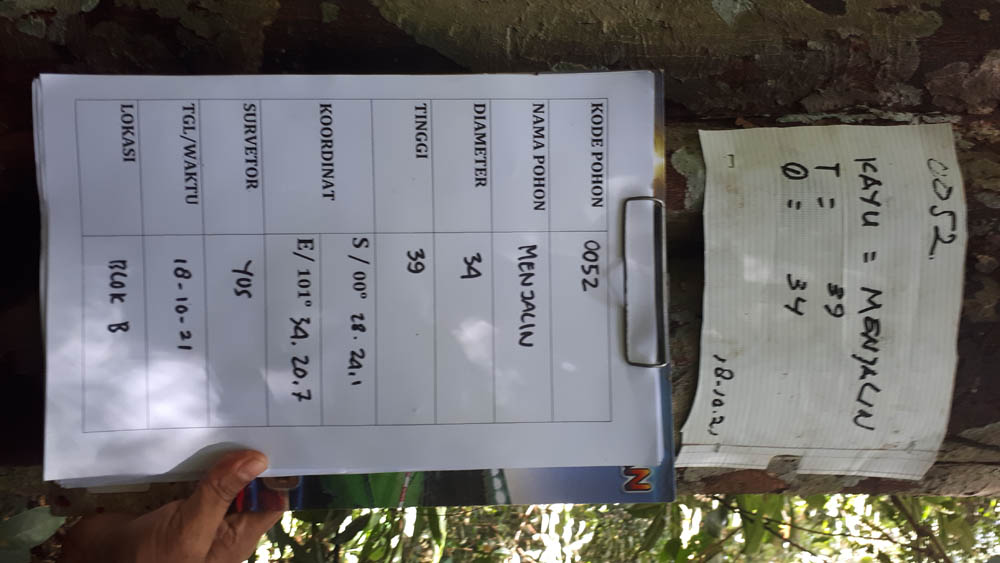 0052
KAYU = MENJALIN
T = 39
Ø = 34
18-10.21
KODE POHON 0052
NAMA POHON MENJALIN
DIAMETER 34
TINGGI 39
KOORDINAT
S / 00° 28. 24.1
E/ 101° 34. 20.7
SURVETOR YUS
TGL/WAKTU 18-10-21
LOKASI BLOK B